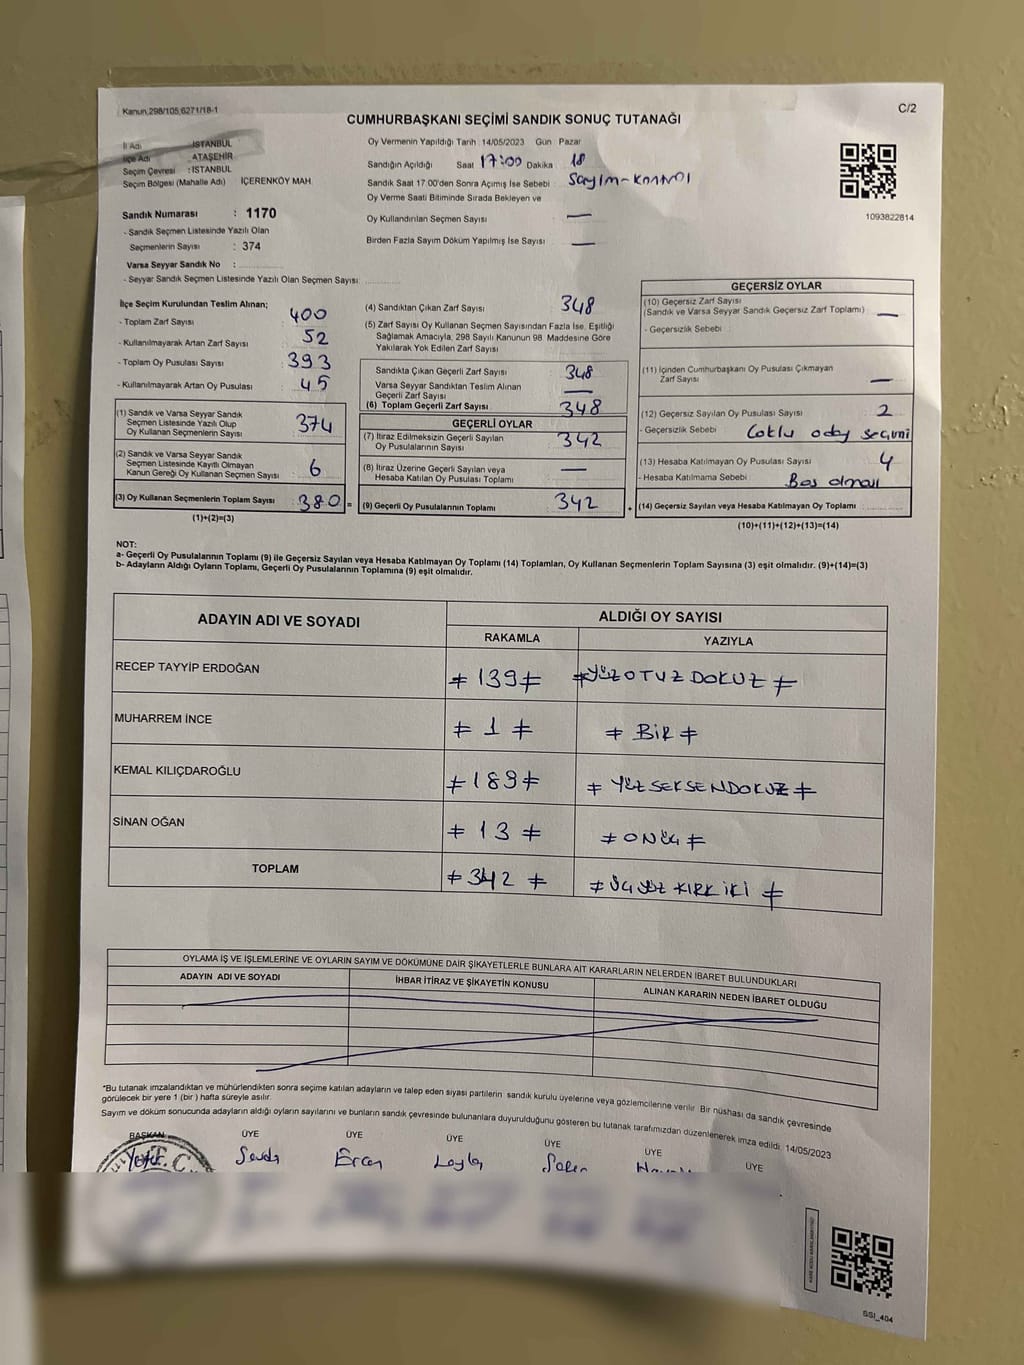 Kanun 298/105 6271/18-1
C/2
CUMHURBAŞKANI SEÇİMİ SANDIK SONUÇ TUTANAĞI
İl Adı : İSTANBUL
İlçe Adı : ATAŞEHİR
Seçim Çevresi : İSTANBUL
Seçim Bölgesi (Mahalle Adı) İÇERENKÖY MAH.
Sandık Numarası : 1170
- Sandık Seçmen Listesinde Yazılı Olan
Seçmenlerin Sayısı : 374
Varsa Seyyar Sandık No :
- Seyyar Sandık Seçmen Listesinde Yazılı Olan Seçmen Sayısı:
Oy Vermenin Yapıldığı Tarih 14/05/2023 Gün Pazar
Sandığın Açıldığı Saat 17:00 Dakika 18
Sandık Saat 17:00'den Sonra Açımış İse Sebebi : Sayım-Kontrol
Oy Verme Saati Bitiminde Sırada Bekleyen ve
Oy Kullandırılan Seçmen Sayısı —
Birden Fazla Sayım Döküm Yapılmış İse Sayısı —
1093822814
İlçe Seçim Kurulundan Teslim Alınan;
- Toplam Zarf Sayısı 400
- Kullanılmayarak Artan Zarf Sayısı 52
- Toplam Oy Pusulası Sayısı 393
- Kullanılmayarak Artan Oy Pusulası 45
(1) Sandık ve Varsa Seyyar Sandık
Seçmen Listesinde Yazılı Olup
Oy Kullanan Seçmenlerin Sayısı 374
(2) Sandık ve Varsa Seyyar Sandık
Seçmen Listesinde Kayıtlı Olmayan
Kanun Gereği Oy Kullanan Seçmen Sayısı 6
(3) Oy Kullanan Seçmenlerin Toplam Sayısı 380 =
(1)+(2)=(3)
(4) Sandıktan Çıkan Zarf Sayısı 348
(5) Zarf Sayısı Oy Kullanan Seçmen Sayısından Fazla İse, Eşitliği
Sağlamak Amacıyla, 298 Sayılı Kanunun 98. Maddesine Göre
Yakılarak Yok Edilen Zarf Sayısı
Sandıkta Çıkan Geçerli Zarf Sayısı 348
Varsa Seyyar Sandıktan Teslim Alınan
Geçerli Zarf Sayısı —
(6) Toplam Geçerli Zarf Sayısı 348
GEÇERLİ OYLAR
(7) İtiraz Edilmeksizin Geçerli Sayılan
Oy Pusulalarının Sayısı 342
(8) İtiraz Üzerine Geçerli Sayılan veya
Hesaba Katılan Oy Pusulası Toplamı —
(9) Geçerli Oy Pusulalarının Toplamı 342 +
GEÇERSİZ OYLAR
(10) Geçersiz Zarf Sayısı
(Sandık ve Varsa Seyyar Sandık Geçersiz Zarf Toplamı) —
- Geçersizlik Sebebi :
(11) İçinden Cumhurbaşkanı Oy Pusulası Çıkmayan
Zarf Sayısı —
(12) Geçersiz Sayılan Oy Pusulası Sayısı 2
- Geçersizlik Sebebi Çoklu aday seçimi
(13) Hesaba Katılmayan Oy Pusulası Sayısı 4
- Hesaba Katılmama Sebebi : Boş olması
(14) Geçersiz Sayılan veya Hesaba Katılmayan Oy Toplamı
(10)+(11)+(12)+(13)=(14)
NOT:
a- Geçerli Oy Pusulalarının Toplamı (9) ile Geçersiz Sayılan veya Hesaba Katılmayan Oy Toplamı (14) Toplamları, Oy Kullanan Seçmenlerin Toplam Sayısına (3) eşit olmalıdır. (9)+(14)=(3)
b- Adayların Aldığı Oyların Toplamı, Geçerli Oy Pusulalarının Toplamına (9) eşit olmalıdır.
ADAYIN ADI VE SOYADI ALDIĞI OY SAYISI
RAKAMLA YAZIYLA
RECEP TAYYİP ERDOĞAN ≠ 139 ≠ ≠ YÜZOTUZDOKUZ ≠
MUHARREM İNCE ≠ 1 ≠ ≠ BİR ≠
KEMAL KILIÇDAROĞLU ≠ 189 ≠ ≠ YÜZSEKSENDOKUZ ≠
SİNAN OĞAN ≠ 13 ≠ ≠ ONÜÇ ≠
TOPLAM ≠ 342 ≠ ≠ ÜÇYÜZ KIRK İKİ ≠
OYLAMA İŞ VE İŞLEMLERİNE VE OYLARIN SAYIM VE DÖKÜMÜNE DAİR ŞİKAYETLERLE BUNLARA AİT KARARLARIN NELERDEN İBARET BULUNDUKLARI
ADAYIN ADI VE SOYADI İHBAR İTİRAZ VE ŞİKAYETİN KONUSU ALINAN KARARIN NEDEN İBARET OLDUĞU
*Bu tutanak imzalandıktan ve mühürlendikten sonra seçime katılan adayların ve talep eden siyasi partilerin sandık kurulu üyelerine veya gözlemcilerine verilir. Bir nüshası da sandık çevresinde
görülecek bir yere 1 (bir) hafta süreyle asılır.
Sayım ve döküm sonucunda adayların aldığı oyların sayılarını ve bunların sandık çevresinde bulunanlara duyurulduğunu gösteren bu tutanak tarafımızdan düzenlenerek imza edildi. 14/05/2023
BAŞKAN ÜYE ÜYE ÜYE ÜYE ÜYE ÜYE
Sevda Ercan Leyla
SSI_404